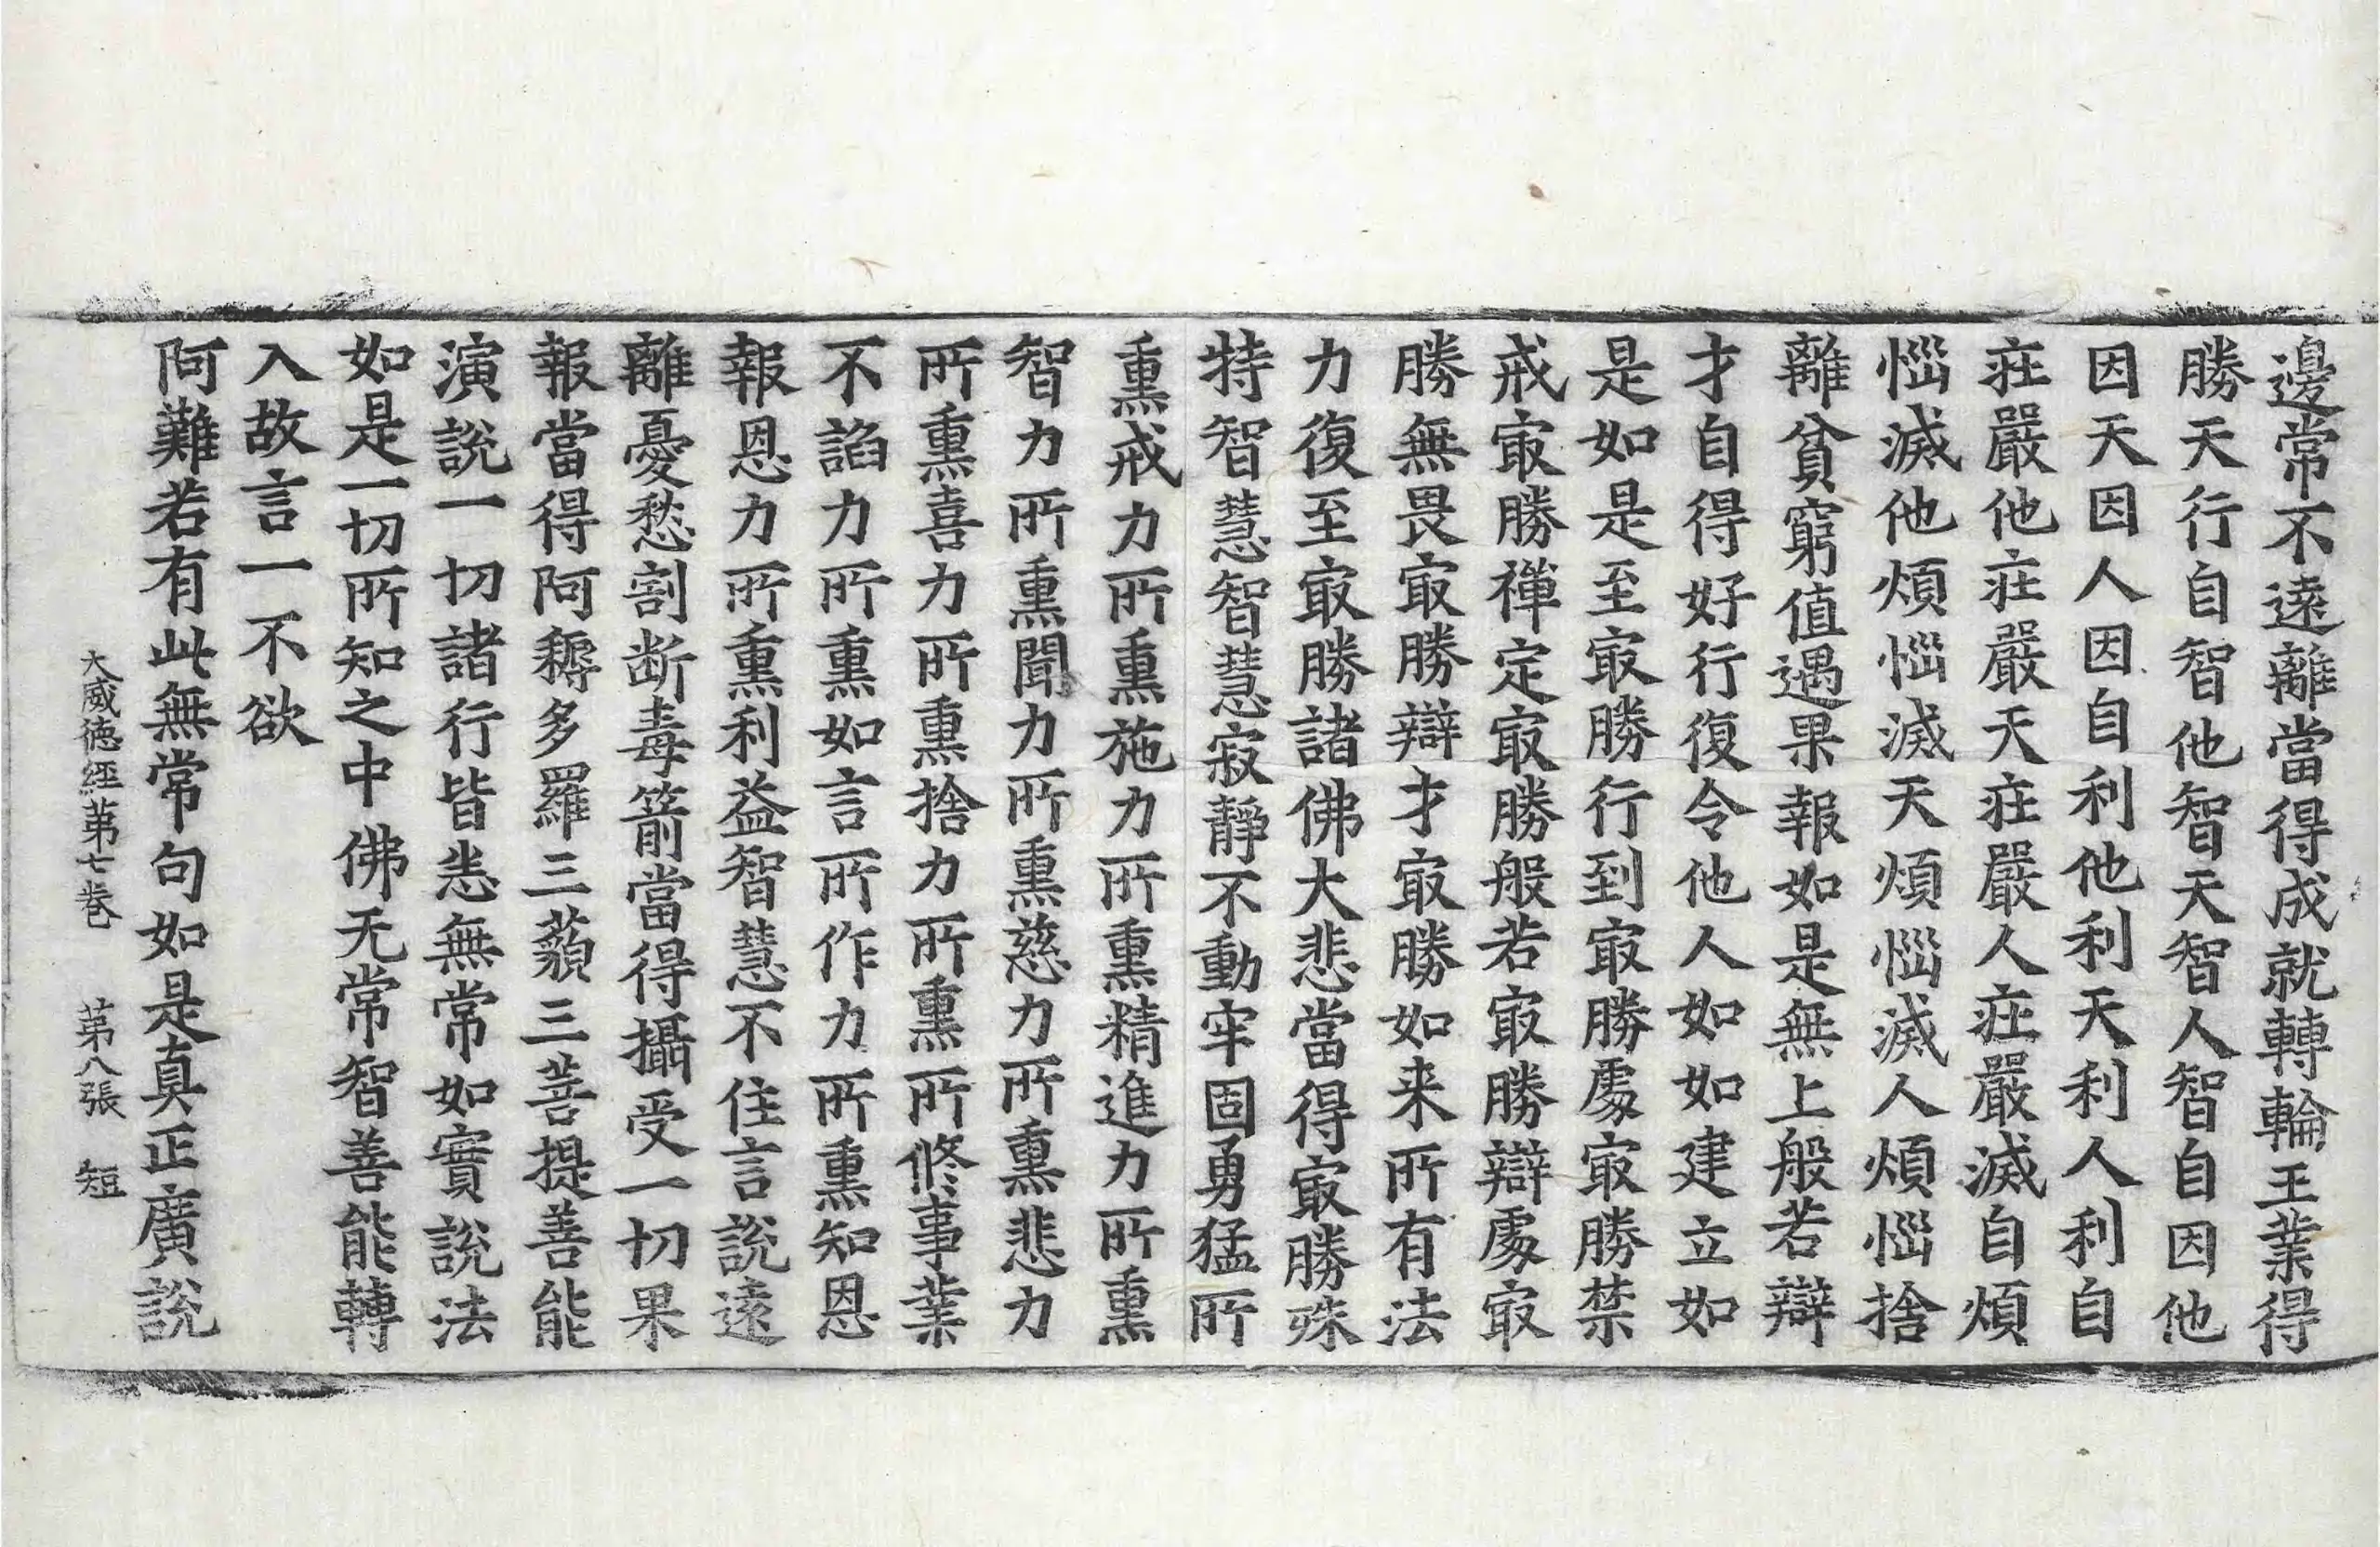 邊常不遠離當得成就轉輪王業得
勝天行自智他智天智人智自因他
因天因人因自利他利天利人利自
莊嚴他莊嚴天莊嚴人莊嚴滅自煩
惱滅他煩惱滅天煩惱滅人煩惱捨
離貧窮值遇果報如是無上般若辯
才自得好行復令他人如如建立如
是如是至㝡勝行到㝡勝處㝡勝禁
戒㝡勝禪定㝡勝般若㝡勝辯處㝡
勝無畏㝡勝辯才㝡勝如来所有法
力復至㝡勝諸佛大悲當得㝡勝殊
特智慧智慧寂靜不動牢固勇猛所
熏戒力所熏施力所熏精進力所熏
智力所熏聞力所熏慈力所熏悲力
所熏喜力所熏捨力所熏所修事業
不諂力所熏如言所作力所熏知恩
報恩力所熏利益智慧不住言說遠
離憂愁割断毒箭當得攝受一切果
報當得阿耨多羅三藐三菩提善能
演說一切諸行皆悉無常如實說法
如是一切所知之中佛无常智善能轉
入故言一不欲
阿難若有此無常句如是真正廣說
大威德經第七卷　第八張　短